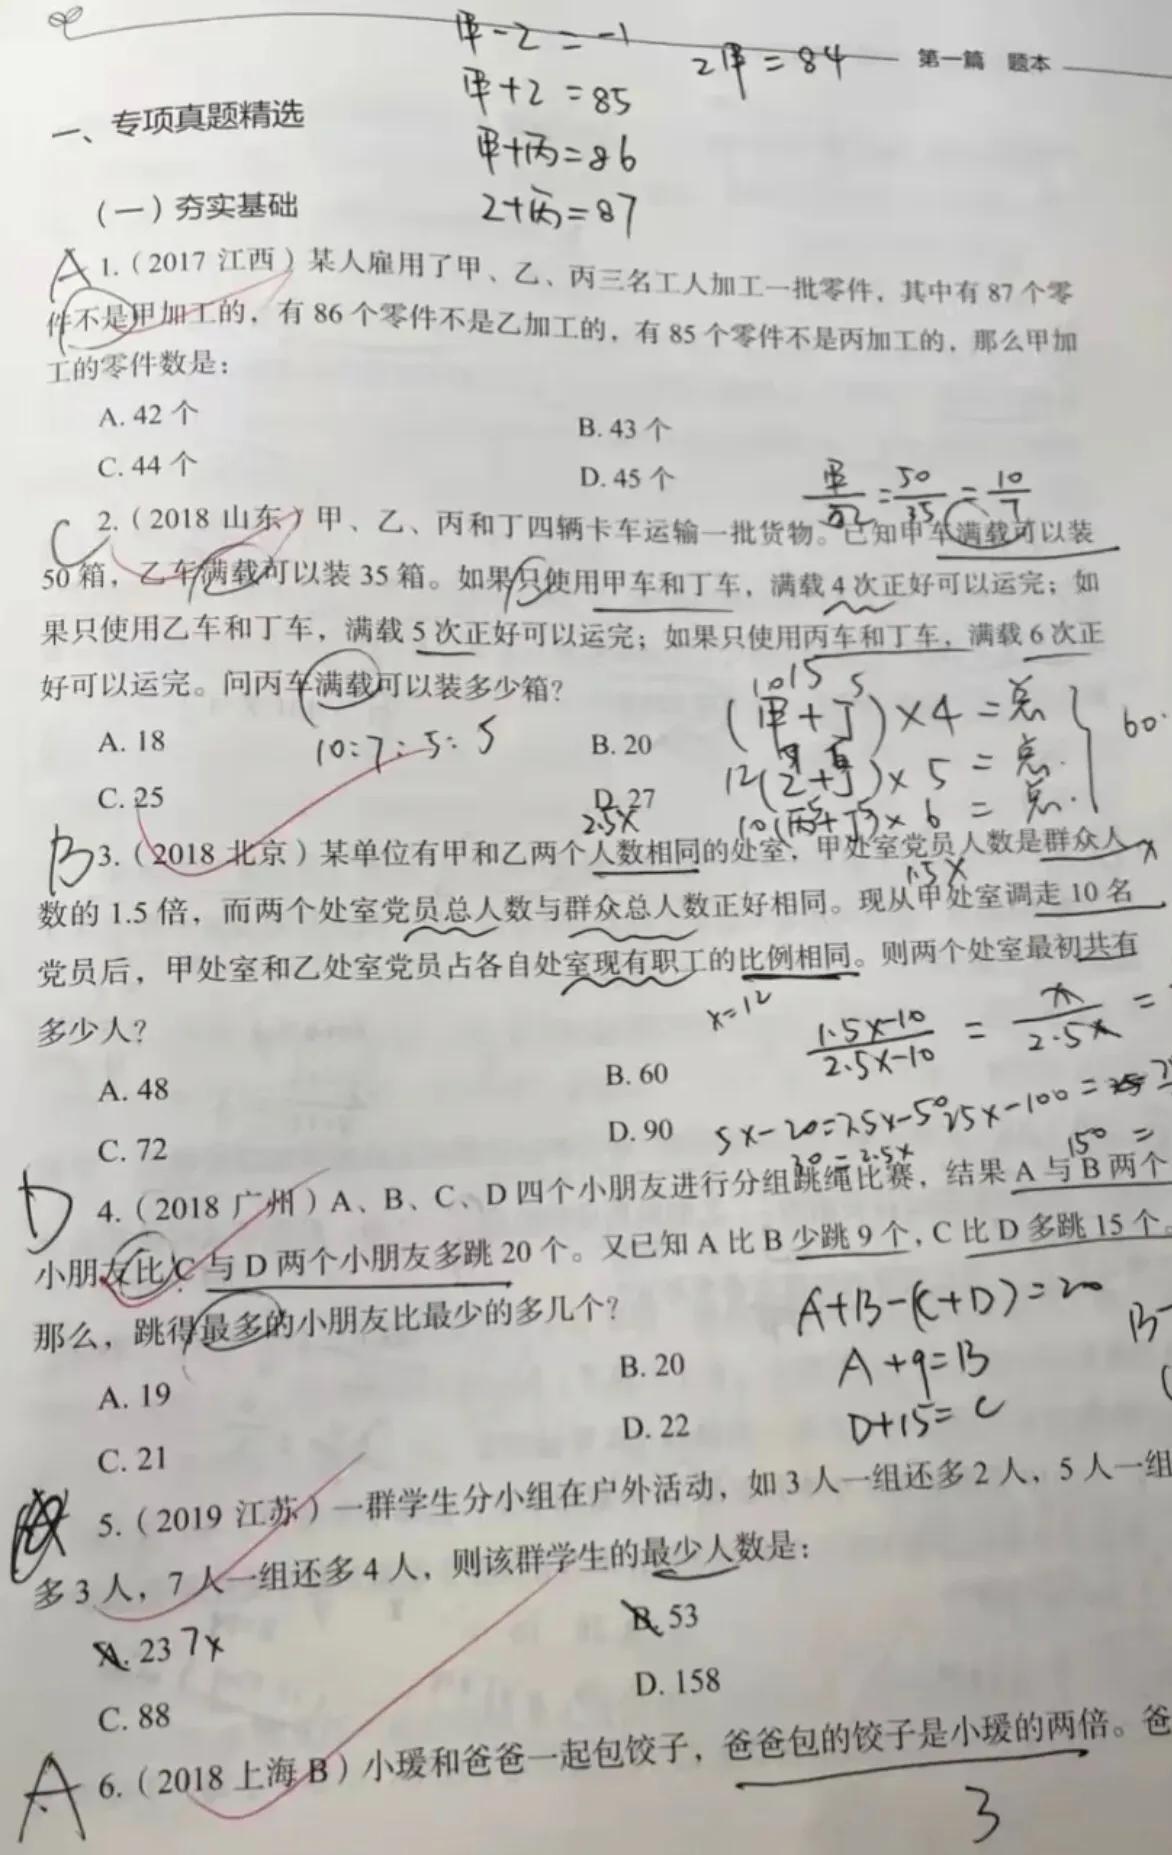 甲-乙=-1
2甲=84
第一篇 题本
甲+乙=85
一、专项真题精选
甲+丙=86
(一)夯实基础
乙+丙=87
A
1.(2017 江西)某人雇用了甲、乙、丙三名工人加工一批零件,其中有 87 个零
件不是甲加工的,有 86 个零件不是乙加工的,有 85 个零件不是丙加工的,那么甲加
工的零件数是:
A. 42 个
B. 43 个
C. 44 个
D. 45 个
甲/乙=50/35=10/7
C
2.(2018 山东)甲、乙、丙和丁四辆卡车运输一批货物。已知甲车满载可以装
50 箱,乙车满载可以装 35 箱。如果只使用甲车和丁车,满载 4 次正好可以运完;如
果只使用乙车和丁车,满载 5 次正好可以运完;如果只使用丙车和丁车,满载 6 次正
好可以运完。问丙车满载可以装多少箱?
10 15 5
(甲+丁)×4=总
60
A. 18
10:7:5:5
B. 20
12(乙+丁)×5=总
C. 25
D. 27
10(丙+丁)×6=总
2.5x
B
3.(2018 北京)某单位有甲和乙两个人数相同的处室,甲处室党员人数是群众人
x
1.5x
数的 1.5 倍,而两个处室党员总人数与群众总人数正好相同。现从甲处室调走 10 名
党员后,甲处室和乙处室党员占各自处室现有职工的比例相同。则两个处室最初共有
多少人?
x=12
1.5x-10/2.5x-10=x/2.5x=
A. 48
B. 60
C. 72
D. 90
5x-20=7.5x-50
25x-100=
30=2.5x
150=
D
4.(2018 广州)A、B、C、D 四个小朋友进行分组跳绳比赛,结果 A 与 B 两个
小朋友比 C 与 D 两个小朋友多跳 20 个。又已知 A 比 B 少跳 9 个,C 比 D 多跳 15 个。
那么,跳得最多的小朋友比最少的多几个?
A+B-(C+D)=20
B-
A. 19
B. 20
A+9=B
C. 21
D. 22
D+15=C
5.(2019 江苏)一群学生分小组在户外活动,如 3 人一组还多 2 人,5 人一组
多 3 人,7 人一组还多 4 人,则该群学生的最少人数是:
A. 23
7x
B. 53
C. 88
D. 158
A
6.(2018 上海 B)小瑗和爸爸一起包饺子,爸爸包的饺子是小瑗的两倍。爸
3